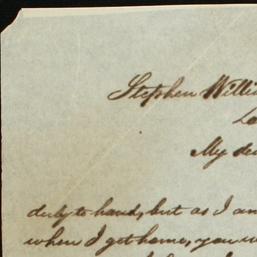 Stephen Willi
Lo
My dea
duly to hand, but as I am
when I get home, you w